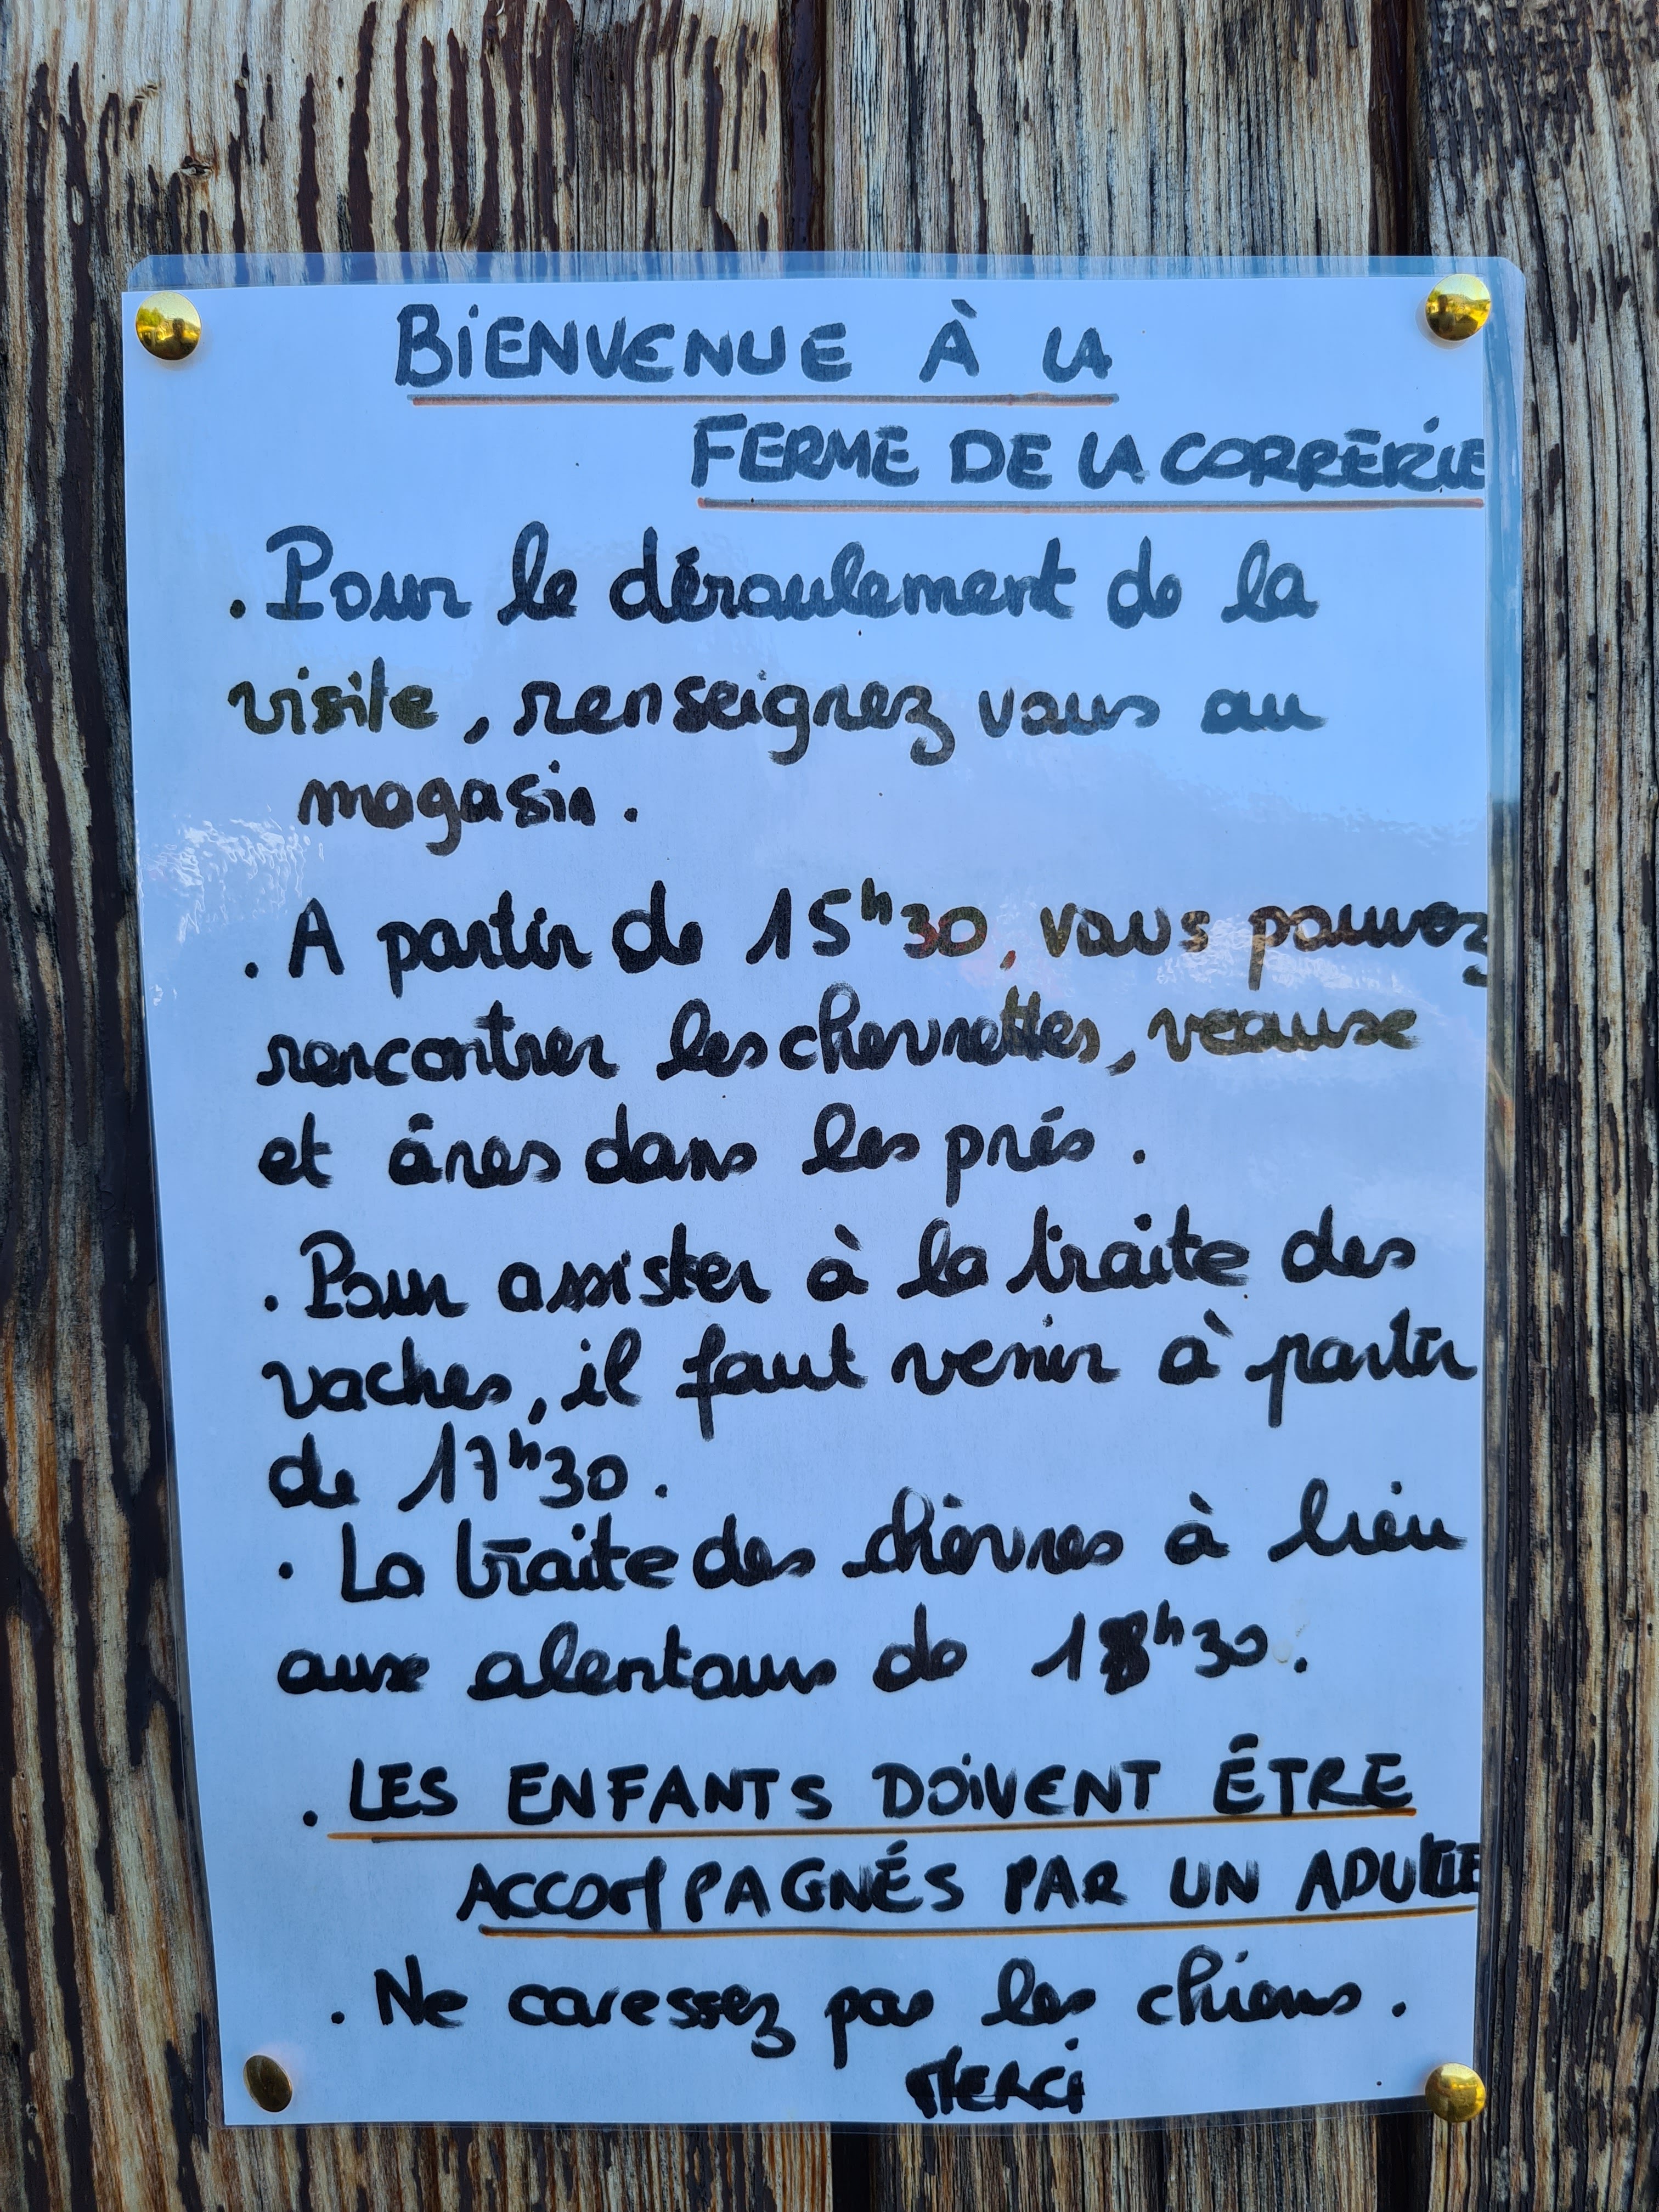 BIENVENUE À LA
FERME DE LA CORRERIE
. Pour le déroulement de la
visite, renseignez vous au
magasin.
. A partir de 15h30, vous pouvez
rencontrer les chevrettes, veaux
et ânes dans les prés.
. Pour assister à la traite des
vaches, il faut venir à partir
de 17h30.
. La traite des chèvres à lieu
aux alentours de 18h30.
. LES ENFANTS DOIVENT ÊTRE
ACCOMPAGNÉS PAR UN ADULTE
. Ne caressez pas les chiens.
MERCI